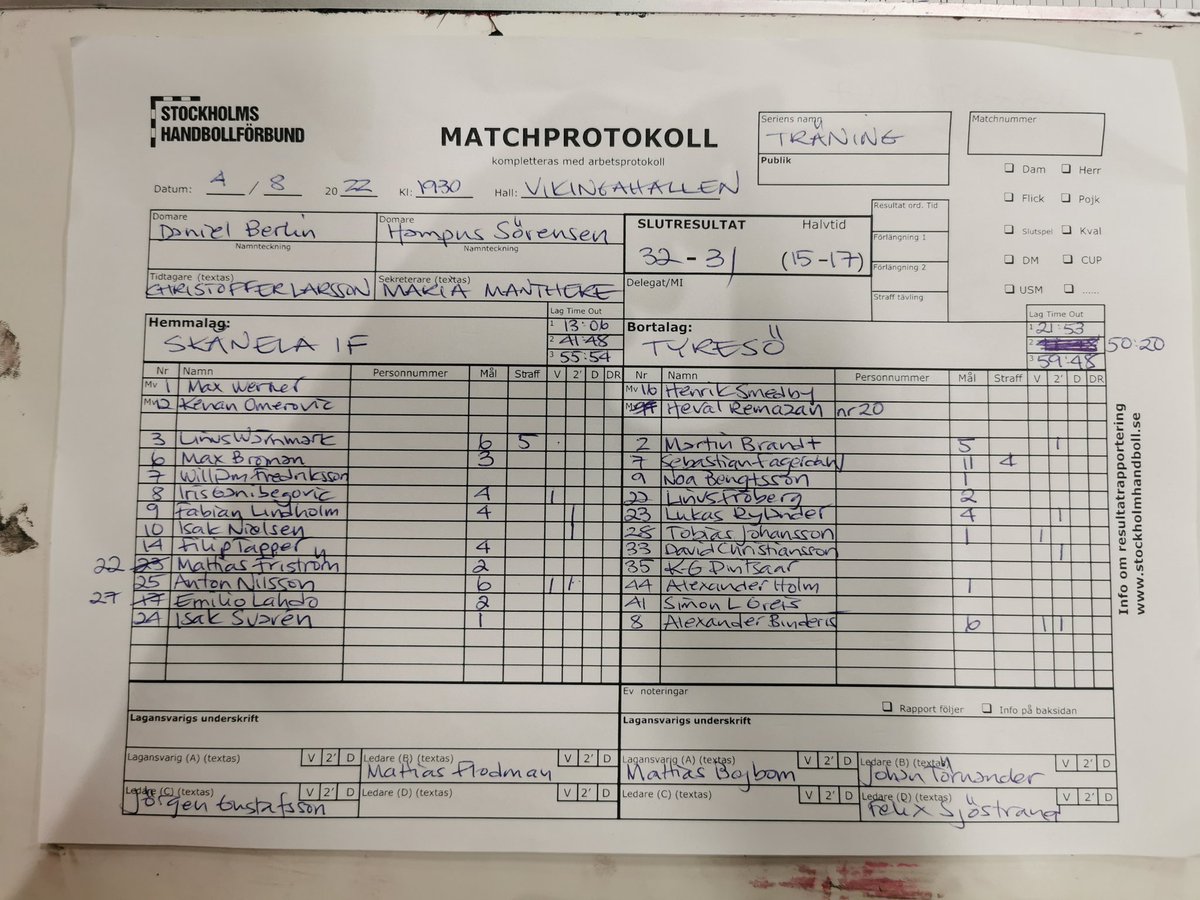 STOCKHOLMS
HANDBOLLFÖRBUND
MATCHPROTOKOLL
kompletteras med arbetsprotokoll
Seriens namn
TRÄNING
Publik
Matchnummer
Dam Herr
Flick Pojk
Slutspel Kval
DM CUP
USM ......
Datum: 4 / 8 2022 Kl: 1930 Hall: VIKINGAHALLEN
Domare Daniel Berlin
Namnteckning
Domare Hampus Sörensen
Namnteckning
SLUTRESULTAT Halvtid
32-31 (15-17)
Resultat ord. Tid
Förlängning 1
Förlängning 2
Straff tävling
Tidtagare (textas) CHRISTOFFER LARSSON
Sekreterare (textas) MARIA MANTHEKE
Delegat/MI
Hemmalag:
SKÅNELA IF
Lag Time Out
1 13:06
2 41:48
3 55:54
Bortalag:
TYRESÖ
Lag Time Out
1 21:53
2 50:20
3 59:48
Nr Namn Personnummer Mål Straff V 2' D DR
Mv 1 Max Werner
Mv 12 Kenan Omerovic
3 Linus Wörnmark 6 5
6 Max Broman 3
7 William Fredriksson
8 Iris Ganibegovic 4 |
9 Fabian Lindholm 4 |
10 Isak Nielsen |
14 Filip Tapper 4
22 Mattias Friström 2
25 Anton Nilsson 6 | |
27 Emilio Lahdo 2
24 Isak Svärén 1
Nr Namn Personnummer Mål Straff V 2' D DR
Mv 16 Henrik Smedby
Heval Remazan nr 20
2 Martin Brandt 5 |
7 Sebastian Fagerdahl 11 4
9 Noa Bengtsson 1
22 Linus Fröberg 2
23 Lukas Rylander 4 |
28 Tobias Johansson 1 |
33 David Christiansson |
35 K-G Dintsaar
44 Alexander Holm 1
41 Simon L Greis
8 Alexander Binderis 6 | |
Info om resultatrapportering
www.stockholmhandboll.se
Ev noteringar
Rapport följer Info på baksidan
Lagansvarigs underskrift
Lagansvarigs underskrift
Lagansvarig (A) (textas) V 2' D
Ledare (B) (textas) V 2' D
Mattias Flodman
Lagansvarig (A) (textas) V 2' D
Mattias Bojbom
Ledare (B) (textas) V 2' D
Johan Törnander
Ledare (C) (textas) V 2' D
Jörgen Gustafsson
Ledare (D) (textas) V 2' D
Ledare (C) (textas) V 2' D
Ledare (D) (textas) V 2' D
Felix Sjöstrand